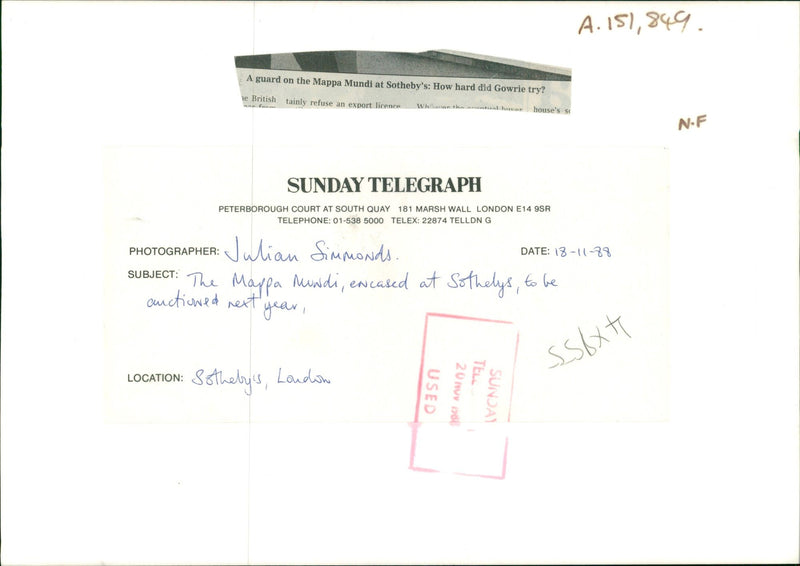 A.151,849.
A guard on the Mappa Mundi at Sotheby's: How hard did Gowrie try?
British tainly refuse an export licence house's
N.F
SUNDAY TELEGRAPH
PETERBOROUGH COURT AT SOUTH QUAY 181 MARSH WALL LONDON E14 9SR
TELEPHONE: 01-538 5000 TELEX: 22874 TELLDN G
PHOTOGRAPHER: Julian Simmonds.
DATE: 18-11-88
SUBJECT: The Mappa Mundi, encased at Sothelys, to be
auctioned next year,
LOCATION: Sotheby's, London
SUNDAY
TELL
20 NOV 1988
USED